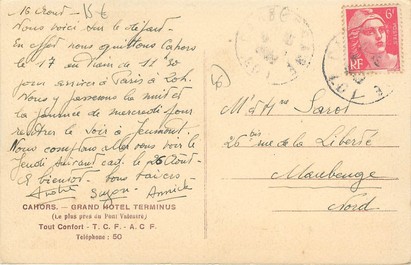 16 Août 15€
Nous voici sur le départ.
En effet nous quittons Cahors
le 17 au train de 11h30
pour arriver à Paris à 20h.
Nous y passerons la nuit et
la journée de mercredi pour
rentrer le soir à Jeumont.
Nous comptons aller vous voir le
Jeudi suivant càd. le 26 Août.
A bientôt. Bons baisers
André Suzon Annick
CAHORS. — GRAND HOTEL TERMINUS
(Le plus près du Pont Valentré)
Tout Confort - T. C. F. - A. C. F.
Téléphone : 50
6F
RF
LOT
M' & Mme Sarot
26 bis rue de la Liberté
Maubeuge
Nord